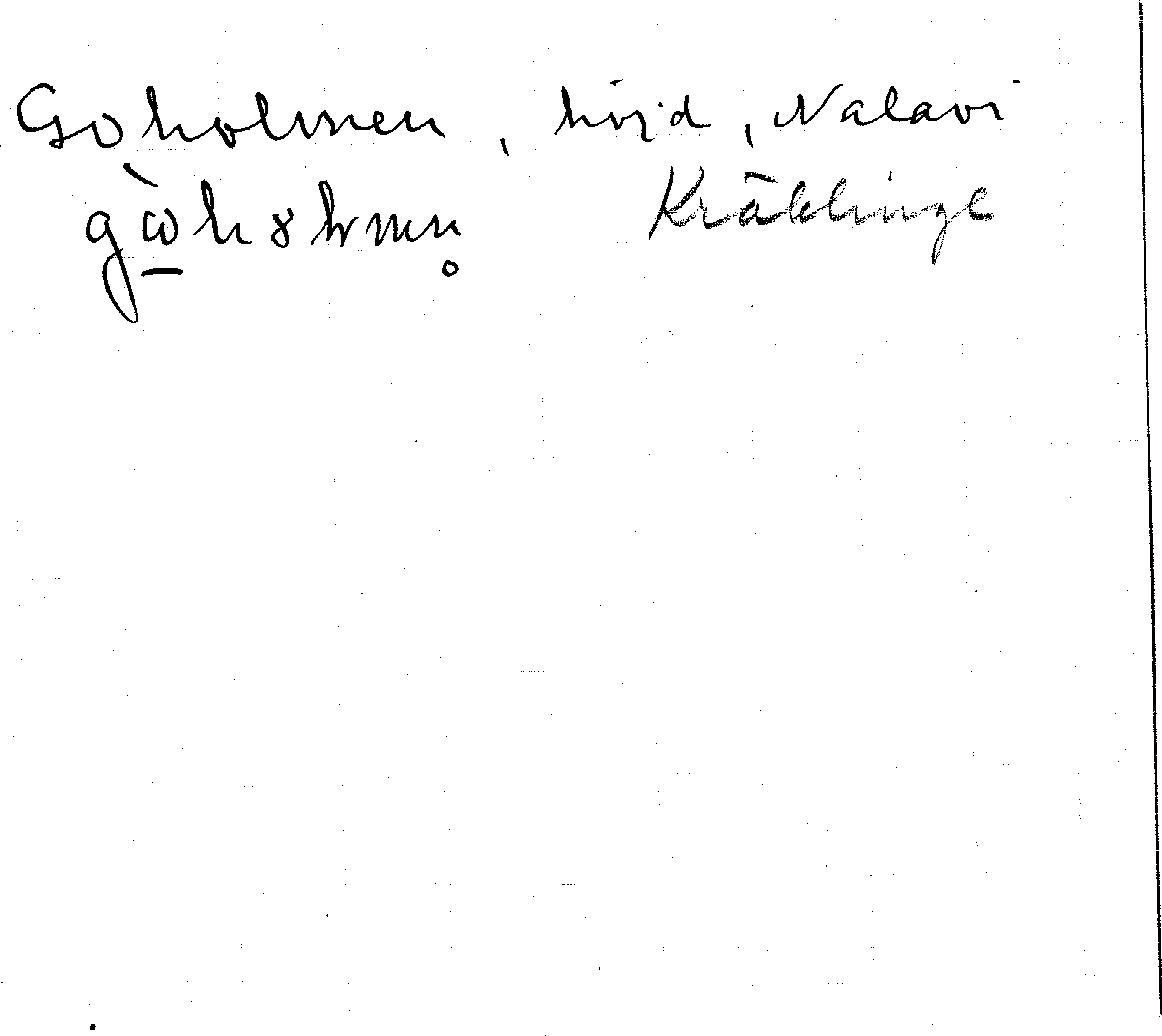 Goholmen, höjd, Nalavi
gὼ̱hȣlmn̥ Kräklinge